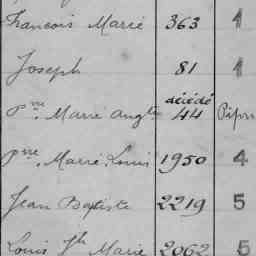 François Marie 363 1
Joseph 81 1
décédé
Pre. Marie Ange 44
Pre. Marie Louis 1950 4
Jean Baptiste 2219 5
Louis Jh Marie 2062 5